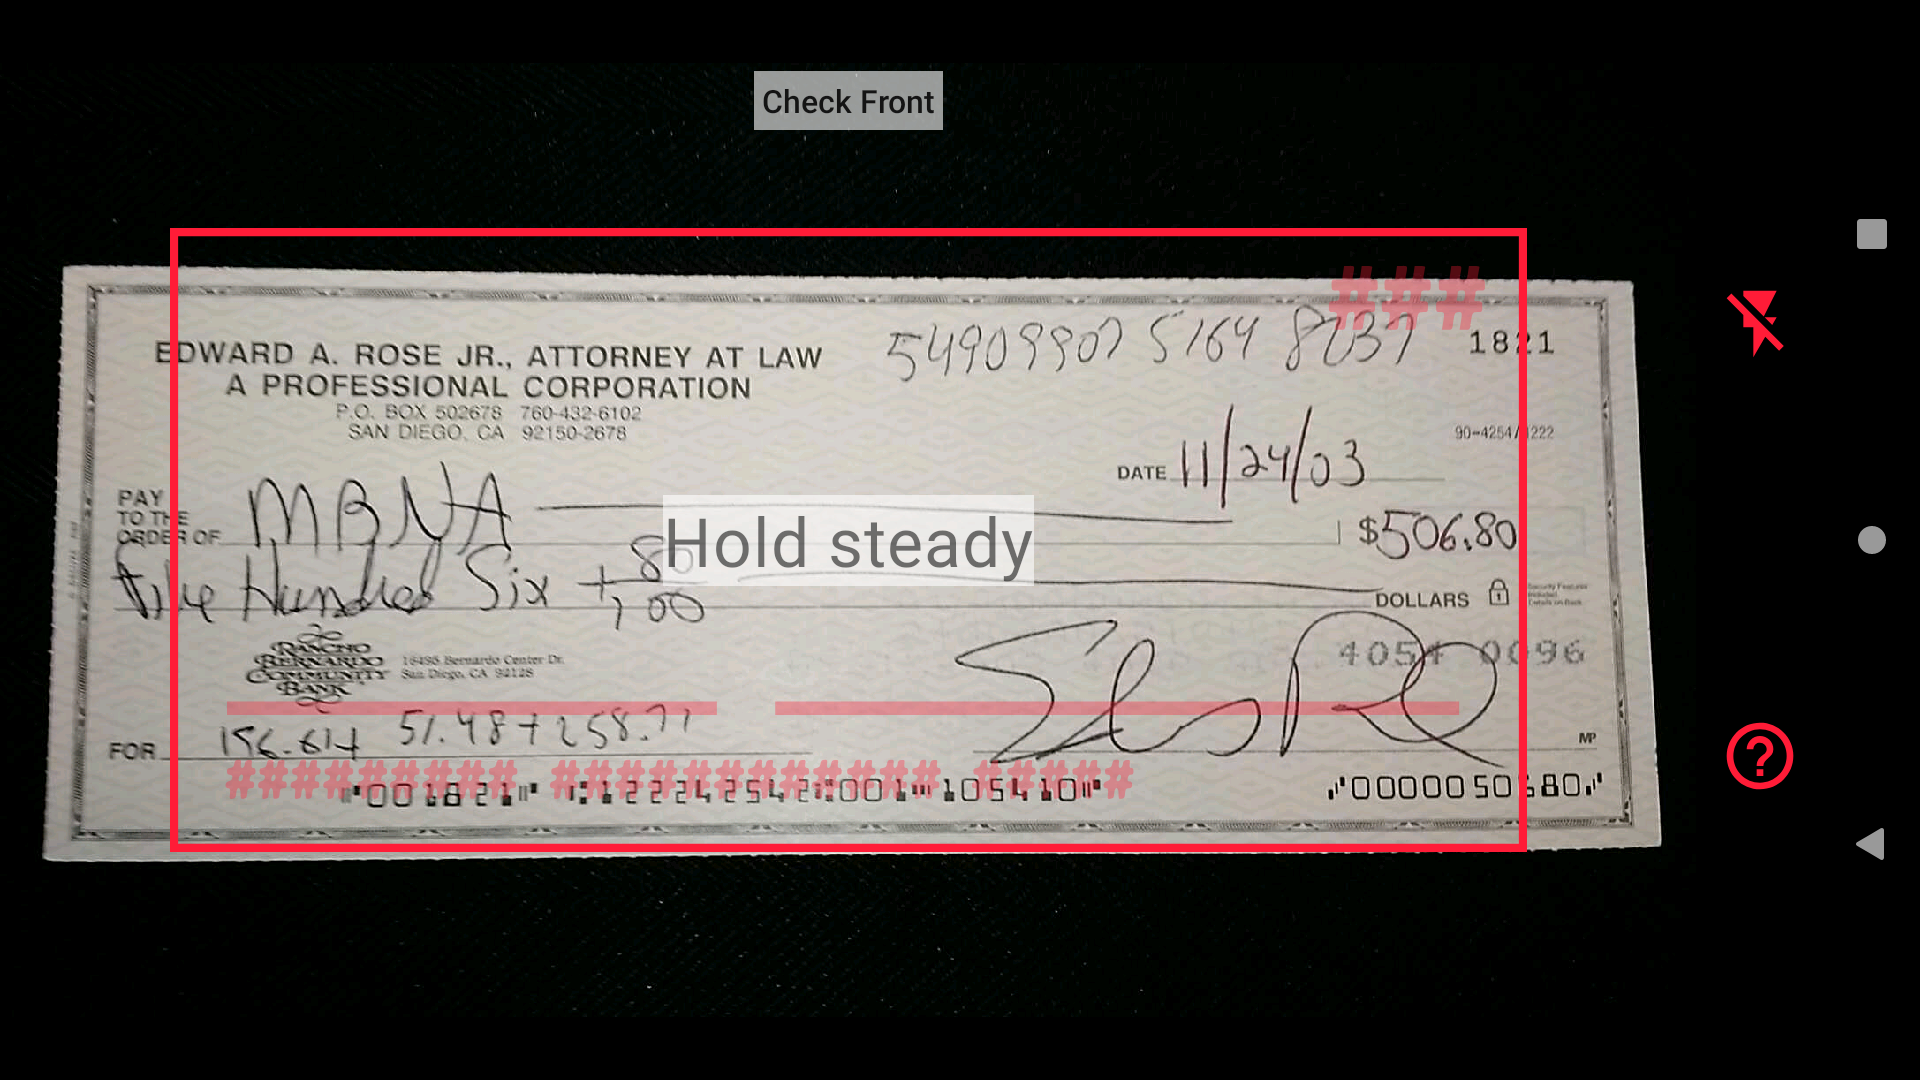 Check Front
EDWARD A. ROSE JR., ATTORNEY AT LAW
A PROFESSIONAL CORPORATION
P.O. BOX 502678 760-432-6102
SAN DIEGO, CA 92150-2678
### 
54909907 5164 8237
1821
90-4254/1222
DATE 11/24/03
PAY TO THE ORDER OF MBNA
$506.80
Hold steady
five Hundred Six + 80/100
DOLLARS
Security Features
Included.
Details on Back.
RANCHO
BERNARDO
COMMUNITY
BANK
16495 Bernardo Center Dr.
San Diego, CA 92128
4054 0096
FOR 51.48+258.71
MP
######### ############ #####
⑈001821⑈ ⑆122242542⑆001⑉105410⑈ ⑇0000050680⑇